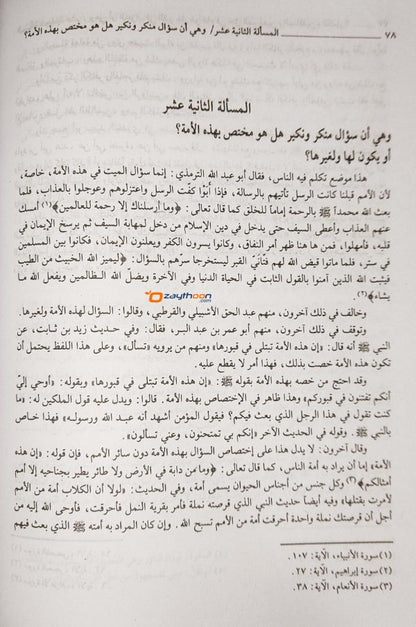 ٧٨ المسألة الثانية عشر/ وهي أن سؤال منكر ونكير هل هو مختص بهذه الأمة؟
المسألة الثانية عشر
وهي أن سؤال منكر ونكير هل هو مختص بهذه الأمة؟
أو يكون لها ولغيرها؟
هذا موضع تكلم فيه الناس، فقال أبو عبد الله الترمذي: إنما سؤال الميت في هذه الأمة، خاصة،
لأن الأمم قبلنا كانت الرسل تأتيهم بالرسالة، فإذا أبَوْا كفّت الرسل واعتزلوهم وعوجلوا بالعذاب، فلما
بعث الله محمداً ﷺ بالرحمة إماماً للخلق كما قال تعالى: ﴿وما أرسلناك إلا رحمة للعالمين﴾(١) أمسك
عنهم العذاب وأعطى السيف حتى يدخل في دين الإسلام من دخل لمهابة السيف ثم يرسخ الإيمان في
قلبه، فأمهلوا، فمن ها هنا ظهر أمر النفاق، وكانوا يسرون الكفر ويعلنون الإيمان، فكانوا بين المسلمين
في ستر، فلما ماتوا قيض الله لهم فتّانَيْ القبر ليستخرجا سرّهم بالسؤال: ﴿ليميز الله الخبيث من الطيب
فيثبت الله الذين آمنوا بالقول الثابت في الحياة الدنيا وفي الآخرة ويضلّ الله الظالمين ويفعل الله ما
يشاء﴾(٢).
zaythoon.com
وخالف في ذلك آخرون، منهم عبد الحق الأشبيلي والقرطبي، وقالوا: السؤال لهذه الأمة ولغيرها.
وتوقف في ذلك آخرون، منهم أبو عمر بن عبد البر، فقال: وفي حديث زيد بن ثابت، عن
النبي ﷺ أنه قال: «إن هذه الأمة تبتلى في قبورها» ومنهم من يرويه «تسأل»، وعلى هذا اللفظ يحتمل أن
تكون هذه الأمة خصت بذلك، فهذا أمر لا يقطع عليه.
وقد احتج من خصه بهذه الأمة بقوله ﷺ: «إن هذه الأمة تبتلى في قبورها» وبقوله: «أوحي إليّ
أنكم تفتنون في قبوركم» وهذا ظاهر في الإختصاص بهذه الأمة. قالوا: ويدل عليه قول الملكين له: «ما
كنت تقول في هذا الرجل الذي بعث فيكم؟ فيقول المؤمن أشهد أنه عبد الله ورسوله» فهذا خاص
بالنبي ﷺ. وقوله في الحديث الآخر «إنكم بي تمتحنون، وعني تسألون».
وقال آخرون: لا يدل هذا على إختصاص السؤال بهذه الأمة دون سائر الأمم، فإن قوله: «إن هذه
الأمة» إما أن يراد به أمة الناس، كما قال تعالى: ﴿وما من دابة في الأرض ولا طائر يطير بجناحيه إلا أمم
أمثالكم﴾(٣) وكل جنس من أجناس الحيوان يسمى أمة، وفي الحديث: «لولا أن الكلاب أمة من الأمم
لأمرت بقتلها» وفيه أيضاً حديث النبي الذي قرصته نملة فأمر بقرية النمل فأحرقت، فأوحى الله إليه من
أجل أن قرصتك نملة واحدة أحرقت أمة من الأمم تسبح الله. وإن كان المراد به أمته ﷺ الذي بعث فيهم
(١) سورة الأنبياء، الآية: ١٠٧.
(٢) سورة إبراهيم، الآية: ٢٧.
(٣) سورة الأنعام، الآية: ٣٨.